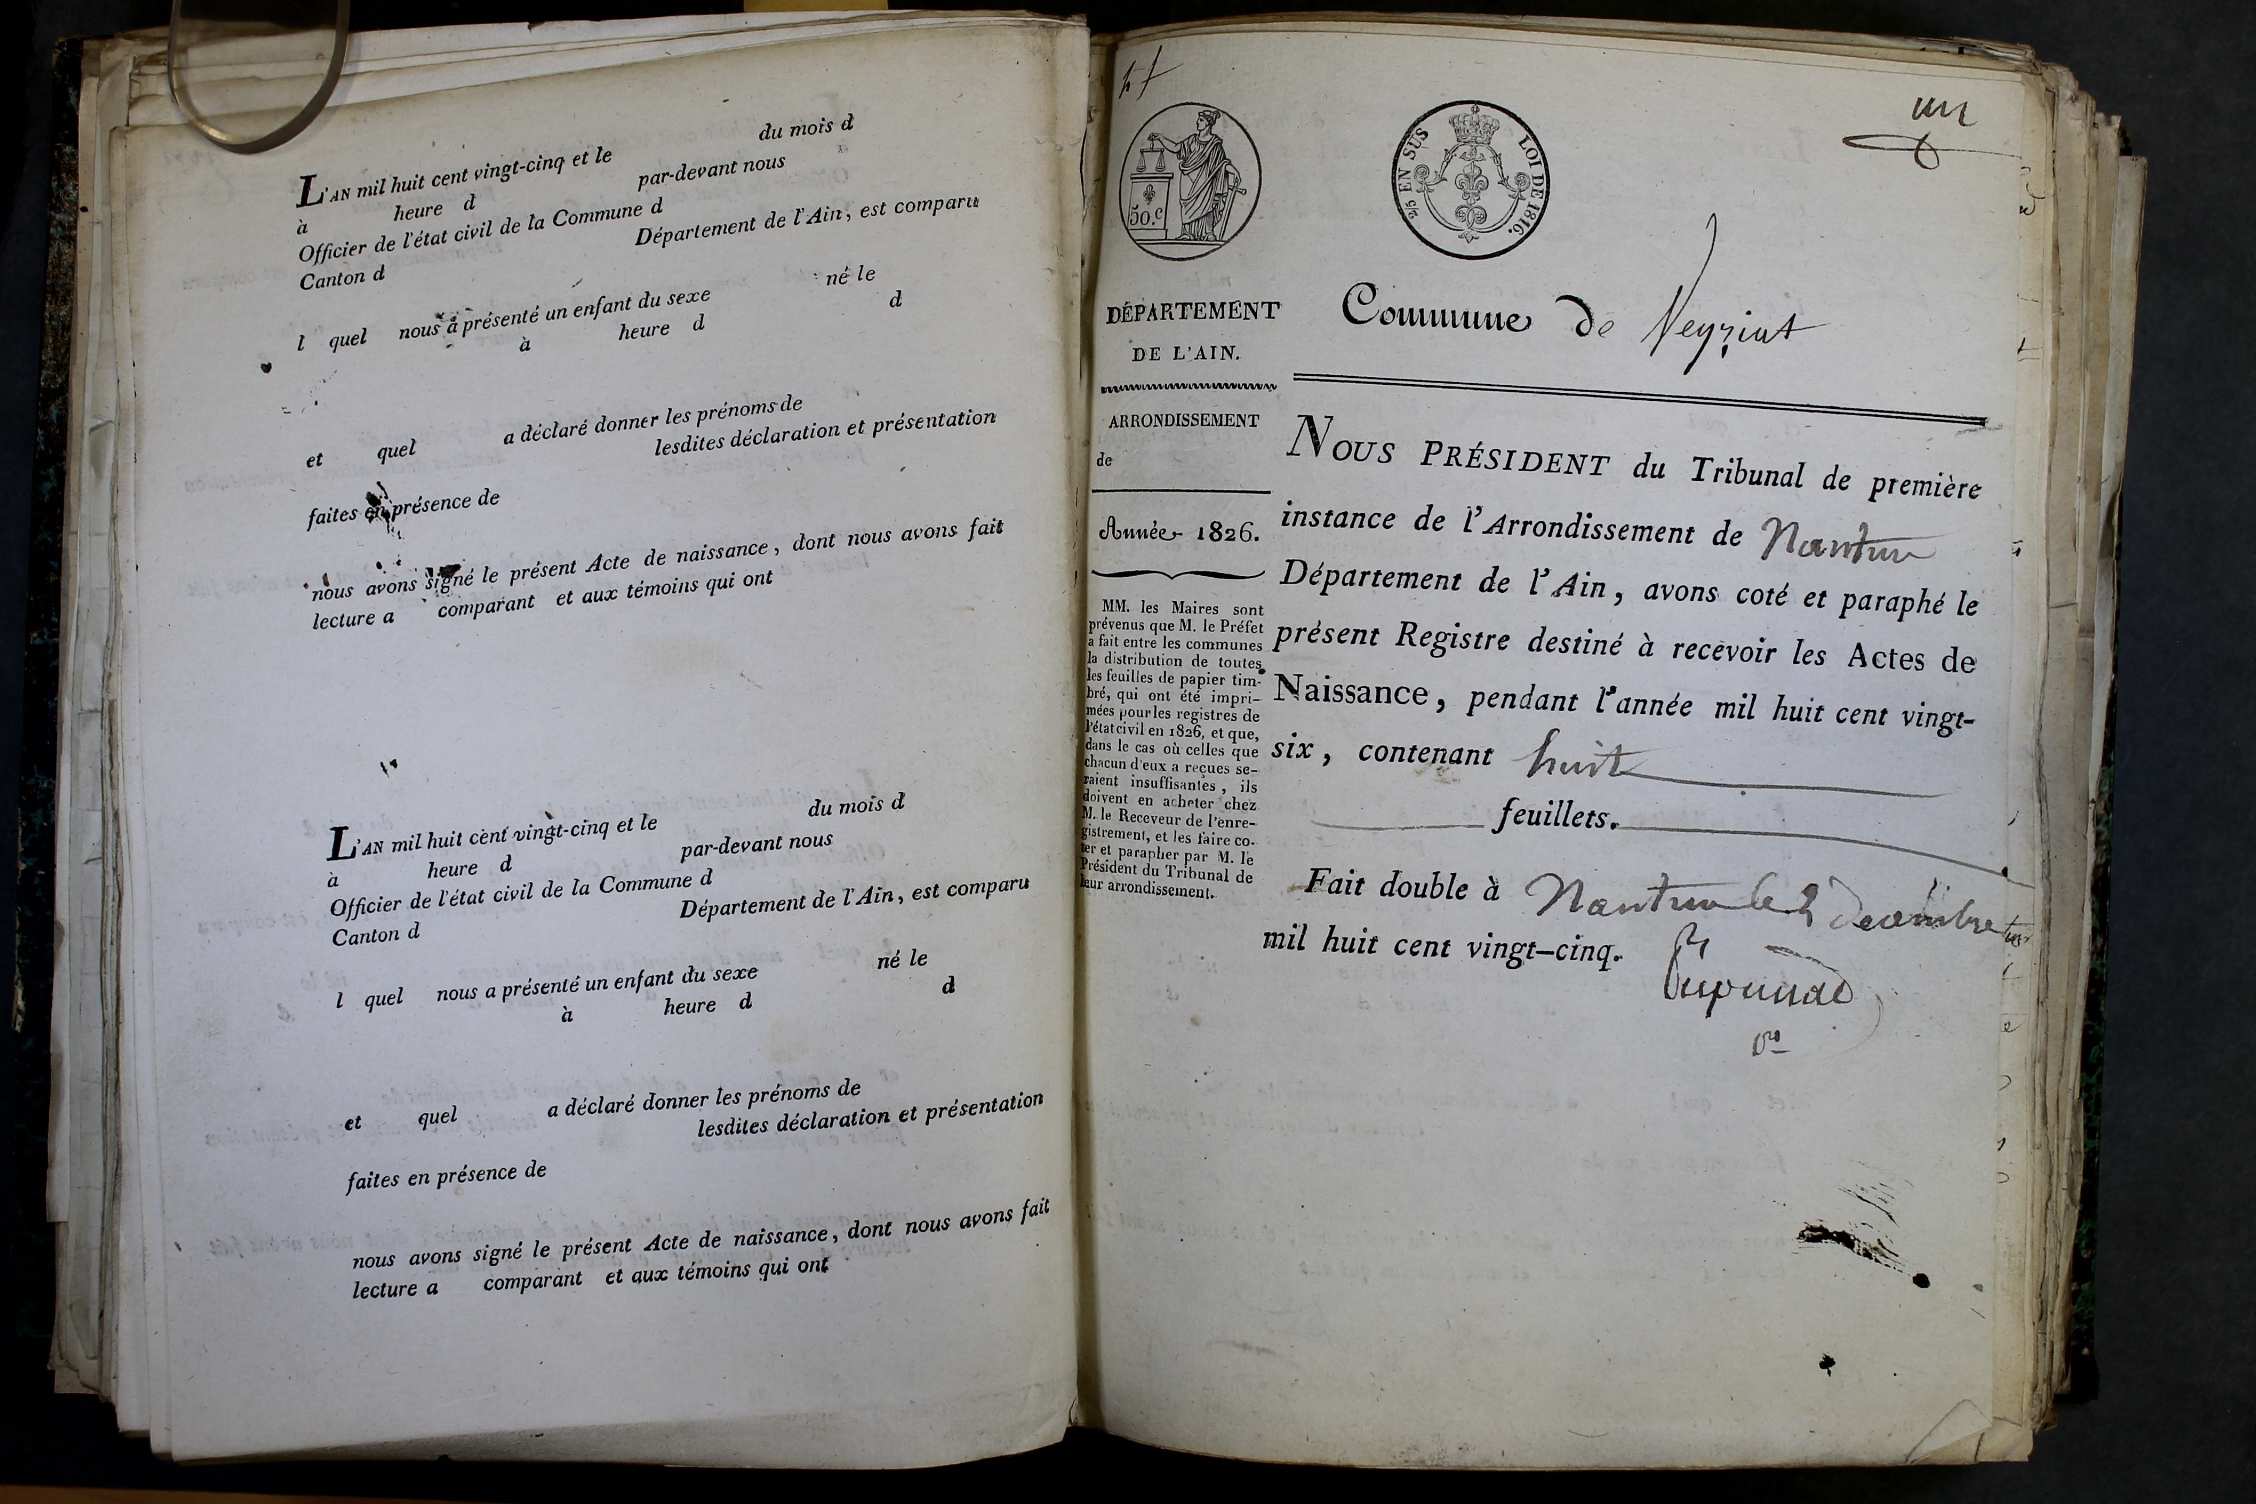 L'AN mil huit cent vingt-cinq et le du mois d
à heure d par-devant nous
Officier de l'état civil de la Commune d
Canton d Département de l'Ain, est comparu
l quel nous a présenté un enfant du sexe né le
à heure d d
et quel a déclaré donner les prénoms de
lesdites déclaration et présentation
faites en présence de
nous avons signé le présent Acte de naissance, dont nous avons fait
lecture a comparant et aux témoins qui ont
L'AN mil huit cent vingt-cinq et le du mois d
à heure d par-devant nous
Officier de l'état civil de la Commune d
Canton d Département de l'Ain, est comparu
l quel nous a présenté un enfant du sexe né le
à heure d d
et quel a déclaré donner les prénoms de
lesdites déclaration et présentation
faites en présence de
nous avons signé le présent Acte de naissance, dont nous avons fait
lecture a comparant et aux témoins qui ont
un
50.c
EN SUS LOI DE 1816.
DÉPARTEMENT
DE L'AIN.
ARRONDISSEMENT
de
Année 1826.
MM. les Maires sont
prévenus que M. le Préfet
a fait entre les communes
la distribution de toutes
les feuilles de papier tim-
bré, qui ont été impri-
mées pour les registres de
l'état civil en 1826, et que,
dans le cas où celles que
chacun d'eux a reçues se-
raient insuffisantes, ils
doivent en acheter chez
M. le Receveur de l'enre-
gistrement, et les faire co-
ter et parapher par M. le
Président du Tribunal de
leur arrondissement.
Commune de Veyziat
NOUS PRÉSIDENT du Tribunal de première
instance de l'Arrondissement de Nantua
Département de l'Ain, avons coté et paraphé le
présent Registre destiné à recevoir les Actes de
Naissance, pendant l'année mil huit cent vingt-
six, contenant huit
feuillets.
Fait double à Nantua le 2 Decembre
mil huit cent vingt-cinq.